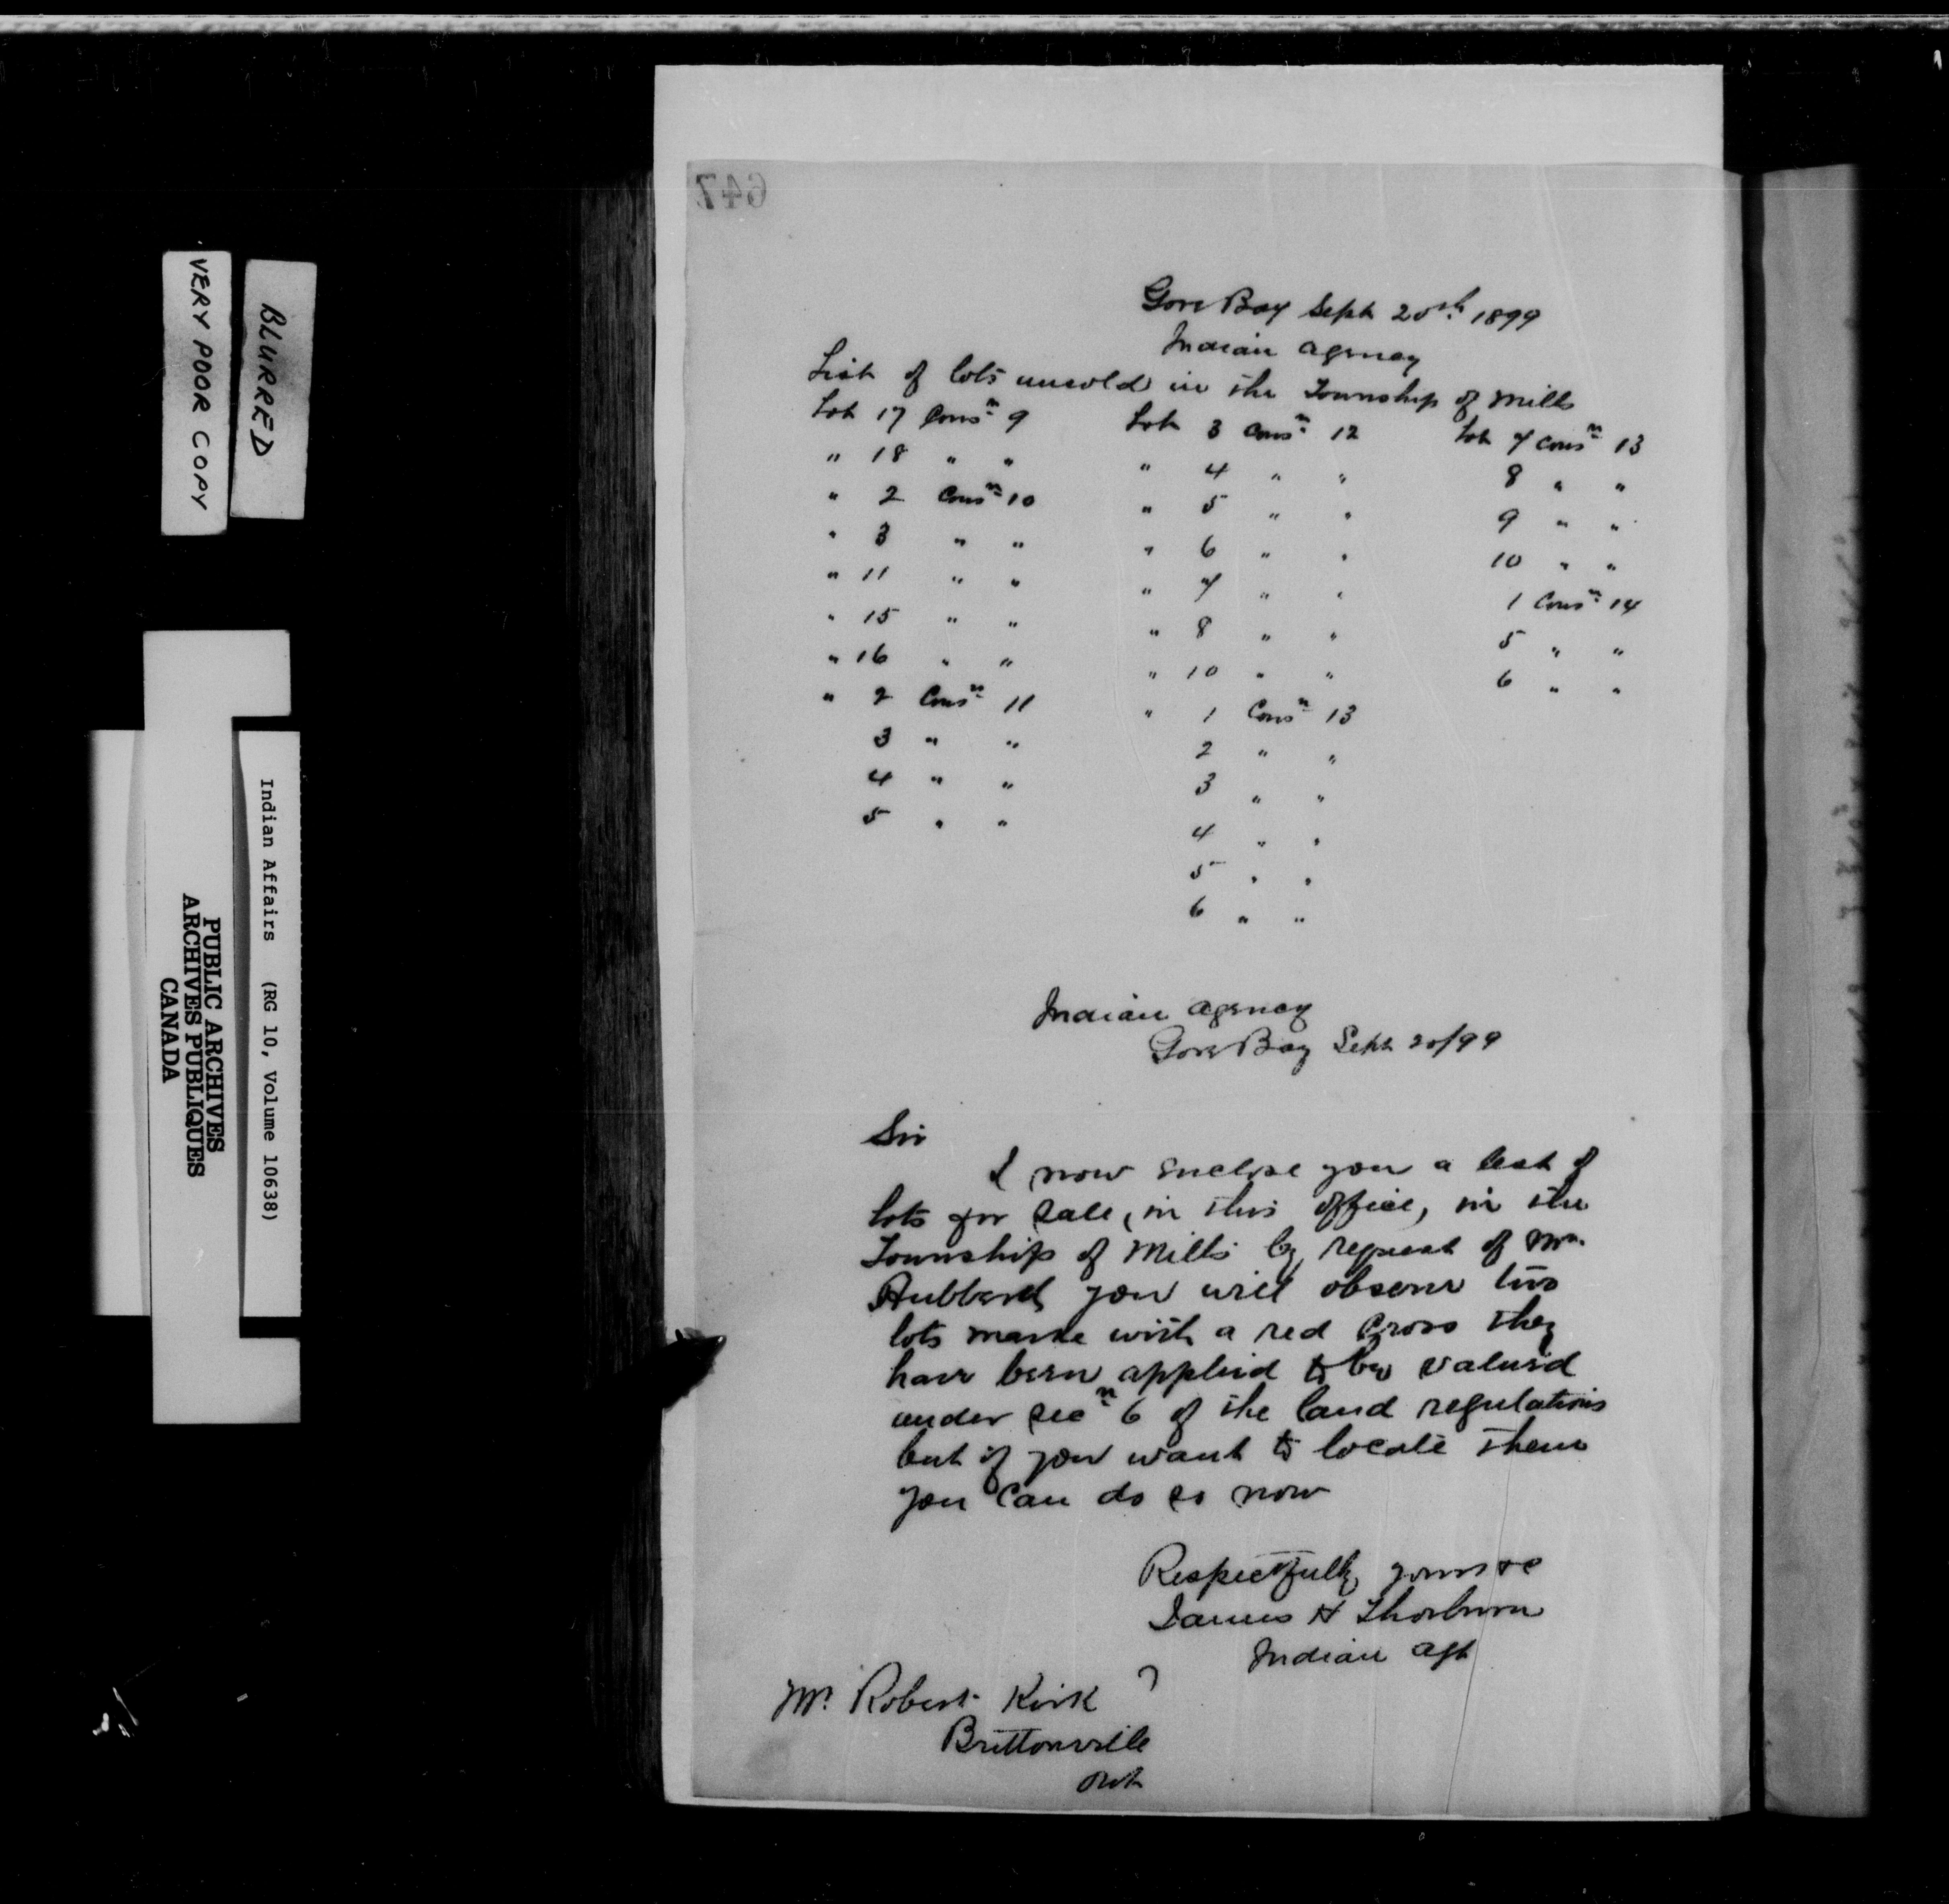 VERY POOR COPY
BLURRED
Indian Affairs (RG 10, Volume 10638)
PUBLIC ARCHIVES
ARCHIVES PUBLIQUES
CANADA
647
Gore Bay Sept 20th 1899
Indian Agency
List of lots unsold in the Township of Mills
Lot 17 Consn 9 Lot 3 Consn 12 Lot 7 Consn 13
" 18 " " " 4 " " 8 " "
" 2 Consn 10 " 5 " " 9 " "
" 3 " " " 6 " " 10 " "
" 11 " " " 7 " " 1 Consn 14
" 15 " " " 8 " " 5 " "
" 16 " " " 10 " " 6 " "
" 2 Consn 11 " 1 Consn 13
3 " " 2 " "
4 " " 3 " "
5 " " 4 " "
5 " "
6 " "
Indian Agency
Gore Bay Sept 20/99
Sir
I now enclose you a list of
lots for sale, in this office, in the
Township of Mills by request of Mr.
Hubbard you will observe two
lots marke with a red Cross they
have been applied to be valued
under secn 6 of the land regulations
but if you want to locate them
you can do so now
Respectfully yours &c
James H Thorburn
Indian Agt
Mr. Robert Kirk
Brittonville
Ont